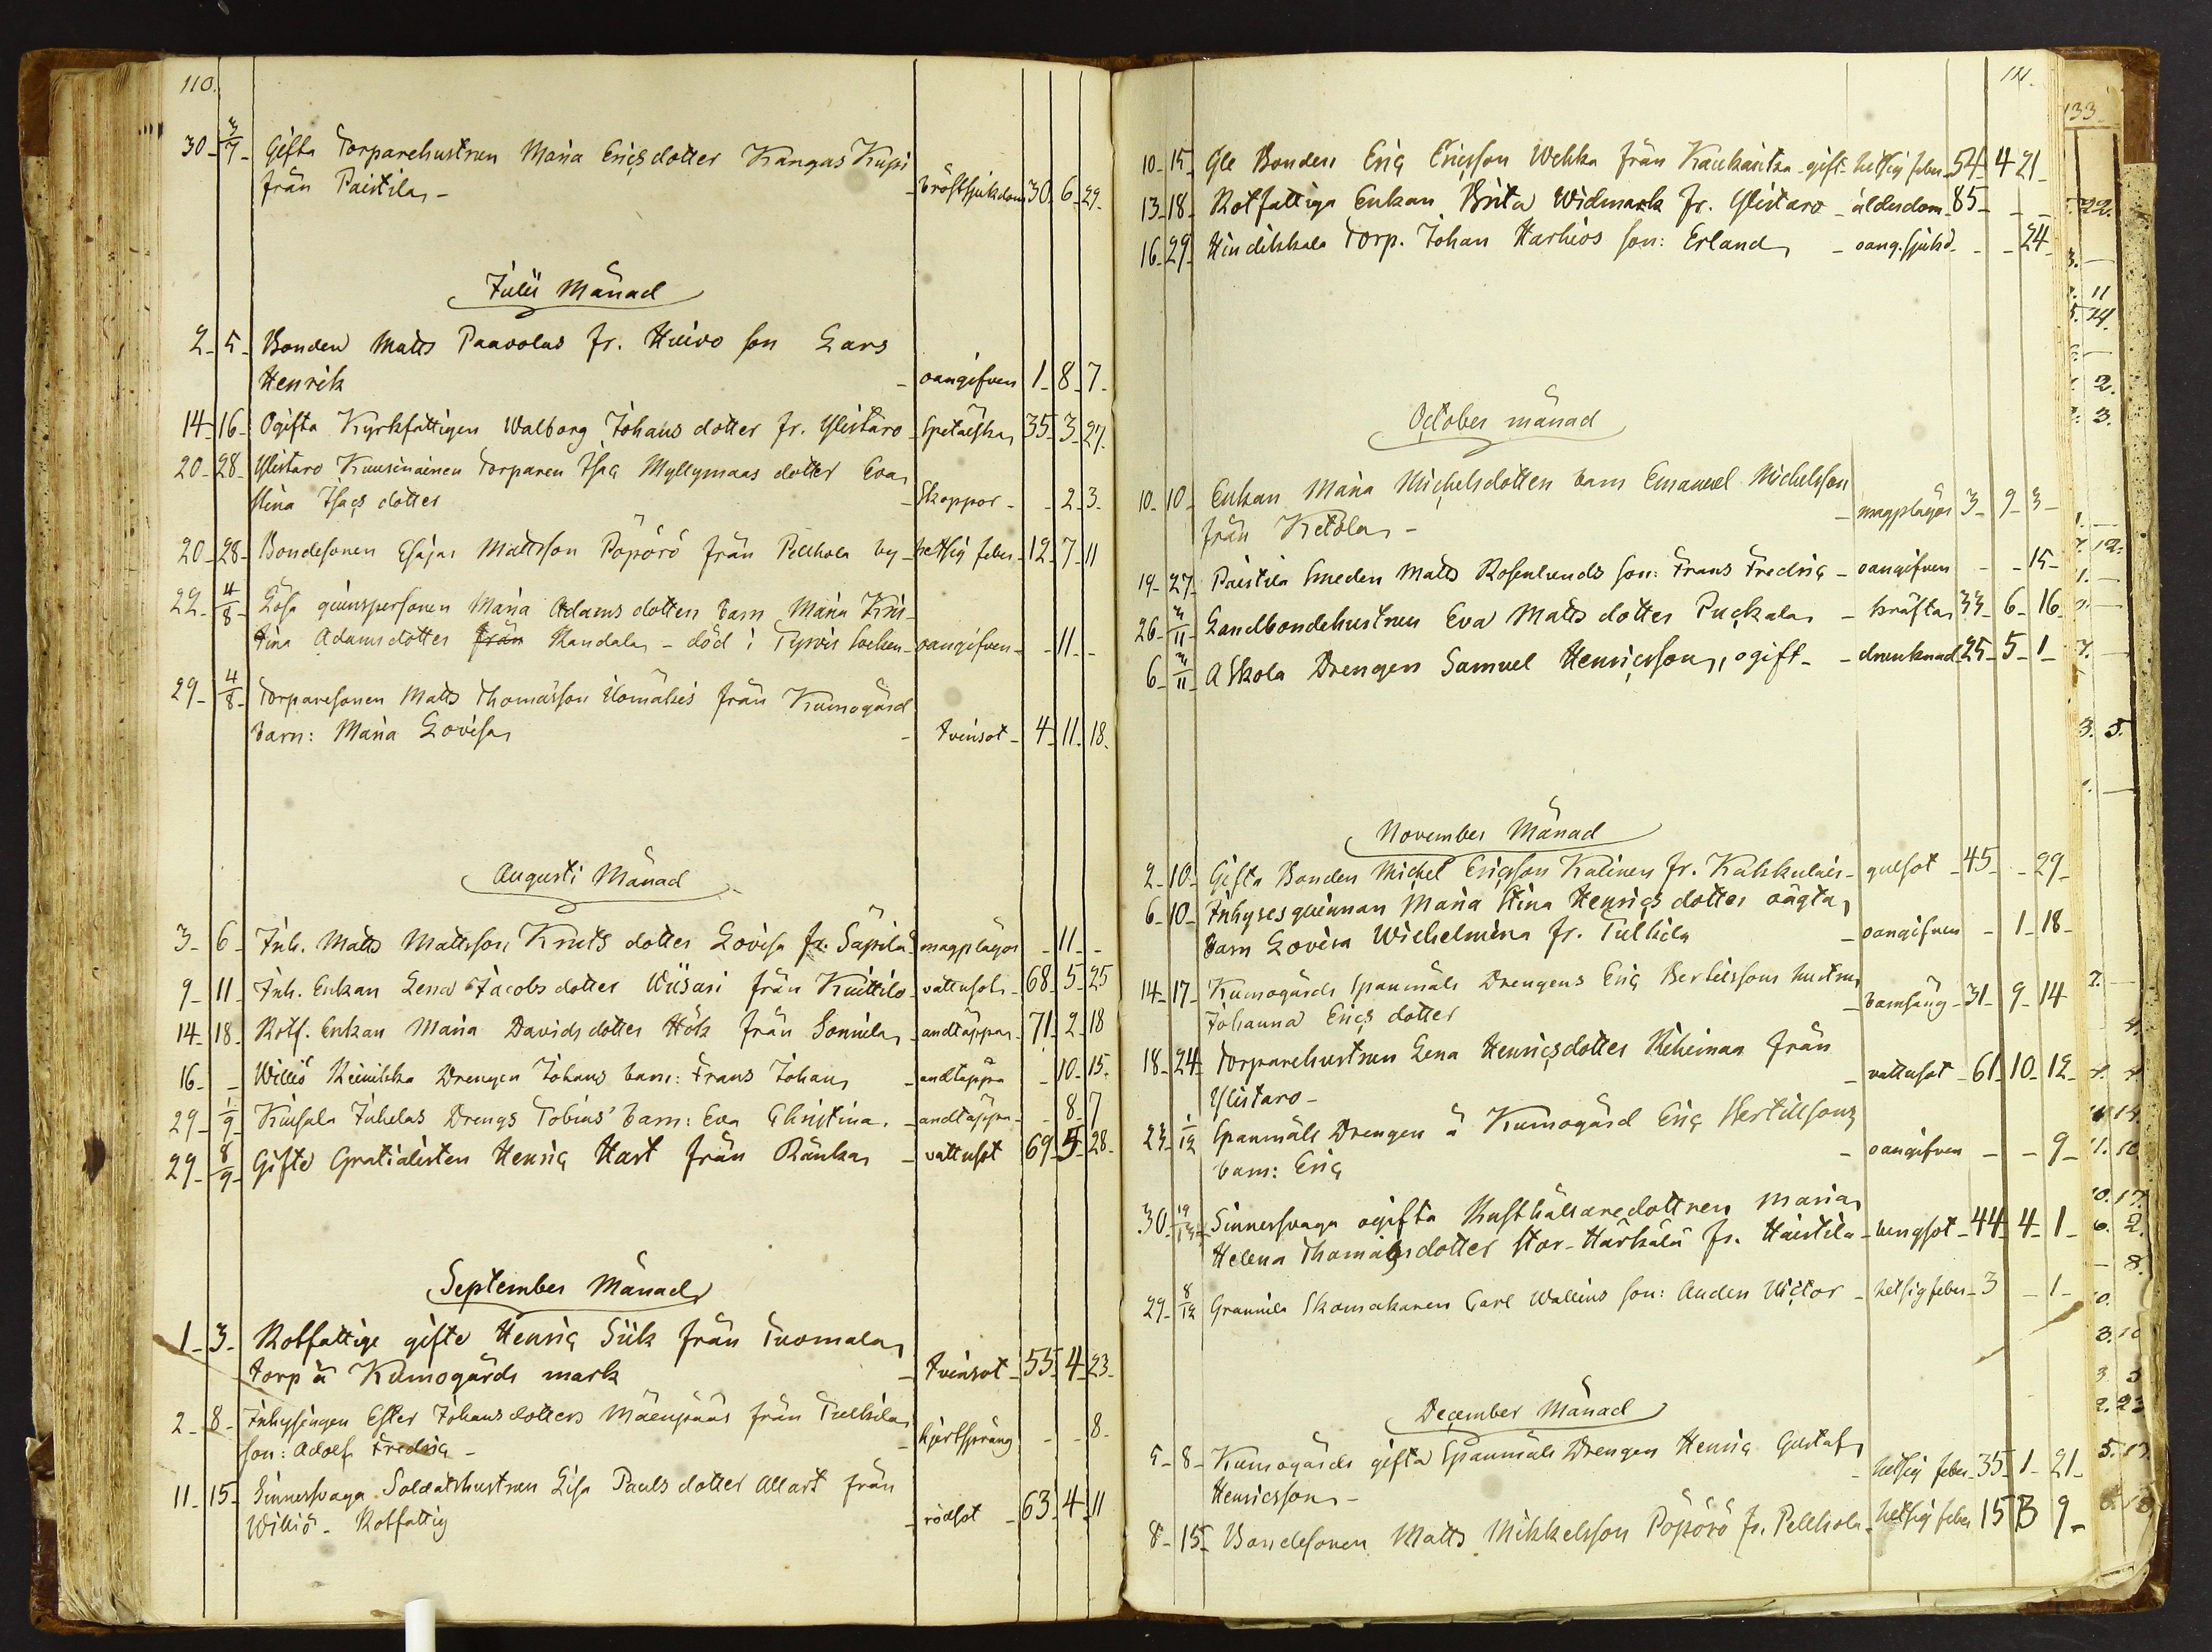 110.
30 - 3/7 - Gifta Torparehustrun Maria Ericsdotter Kangas Kupi
från Paistila - bröstsjukdom 30. 6. 29.
Julii Månad
2 - 5 - Bonden Matts Paavolas fr. Huivo son Lars
Henrik - oangifven 1. 8. 7.
14 - 16 - Ogifta Kyrkfattigen Walborg Johans dotter fr. Ylistaro - Spetälska 35. 3. 27.
20 - 28 - Ylistaro Kuusinainen Torparen Isac Myllymaas dotter Eva
Stina Isacs dotter - Skoppor - - 2. 3.
20 - 28 - Bondesonen Esajas Mattsson Pöpörö från Pellhola by - hettsig feber - 12 - 7 - 11
22 - 4/8 - Lösa qvinspersonen Maria Adams dotters barn Maria Kris-
tina Adamsdotter från Kandala - död i Tyrvis socken - oangifven - - 11 - -
29 - 4/8 - Torparesonen Matts Thomasson Ilomäkis från Kumogård
barn: Maria Lovisa - tvinsot - 4 - 11. 18.
Augusti Månad
3 - 6 - Inh. Matts Mattsson Knuts dotter Lovisa fr. Säpilä - magplågor - 11 - -
9 - 11 - Inh. Enkan Lena Jacobs dotter Wiisari från Kuittilo - vattusot - 68 - 5 - 25
14 - 18 - Rotf. Enkan Maria Davids dotter Hök från Sonnila - andtäppa - 71 - 2 - 18
16 - - Williö Reinikka Drengen Johans barn: Frans Johan - andtäppa - 10 - 15.
29 - 1/9 - Kuisala Juhelas Drengs Tobias' barn: Eva Christina. - andtäppa - - 8 - 7
29 - 8/9 - Gifte Gratialisten Henric Hast från Ränka - vattusot 69 - 5 - 28.
September Månad
1 - 3 - Rotfattige gifte Henric Siik från Tuomala
torp å Kumogårds mark - tvinsot - 55 - 4 - 23.
2 - 8 - Inhysingen Ester Johansdotters Mäenpääs från Tulkila
son: Adolf Fredric - hjertsprång - - 8.
11 - 15 - Sinnessvaga Soldatshustrun Lisa Pauls dotter Allart från
Williö - Rotfattig - rödsot - 63. 4 - 11
111.
10 - 15 Gle Bonden Eric Ericsson Wehka från Kaukaritsa - gift - hetsig feber - 54 - 4 21 -
13 - 18 - Rotfattiga Enkan Brita Widmark fr. Ylistaro - ålderdom - 85 - - -
16 - 29 - Hindikkala Torp. Johan Harhios son: Erland - oang. sjukd - - - 24 -
October månad
10 - 10 - Enkan Maria Michelsdotters barn Emanuel Michelsson
från Ketola - - magplågor 3 - 9 - 3 -
19 - 27 - Paistila Smeden Matts Rosenlunds son: Frans Fredric - oangifven - - 15 -
26 - 3/11 - Landbondehustrun Eva Matts dotter Puckala - kräfta 33 - 6 - 16
6 - 3/11 - Askola Drengen Samuel Henricsson, ogift - - drunknad 25 - 5 - 1 -
November Månad
2 - 10 - Gifta Bonden Michel Ericsson Kalinen fr. Kakkulais - gulsot - 45 - - 29 -
6 - 10 - Inhysesqvinnan Maria Stina Henrics dotter oägta
barn Lovisa Wilhelmina fr. Tulkila - oangifven - 1 - 18 -
14 - 17 - Kumogårds Spanmåls Drengens Eric Bertilssons hustru
Johanna Erics dotter - barnsäng - 31 - 9 - 14
18 - 24 - Torparehustrun Lena Henricsdotter Riheinaa från
Ylistaro - - vattusot - 61 - 10 - 12 -
23 - 1/12 Spanmåls Drengen å Kumogård Eric Bertillsons
barn: Eric - oangifven - - 9 -
30 - 19/12 - Sinnessvaga ogifta Rusthållaredottren Maria
Helena Thomasdotter Stor-Härkälä fr. Haistila - lungsot - 44 - 4 - 1 -
29 - 8/12 Grannila Skomakaren Carl Wallins son: Anders Victor - hetsig feber - 3 - 1 -
December Månad
5 - 8 - Kumogårds gifta Spanmåls Drengen Henric Gustaf
Henricsson - - hetsig feber - 35 - 1 - 21 -
8 - 15 - Bondesonen Matts Mikkelsson Pöpörö fr. Pellhola - hetsig feber 15 3 9 -
133